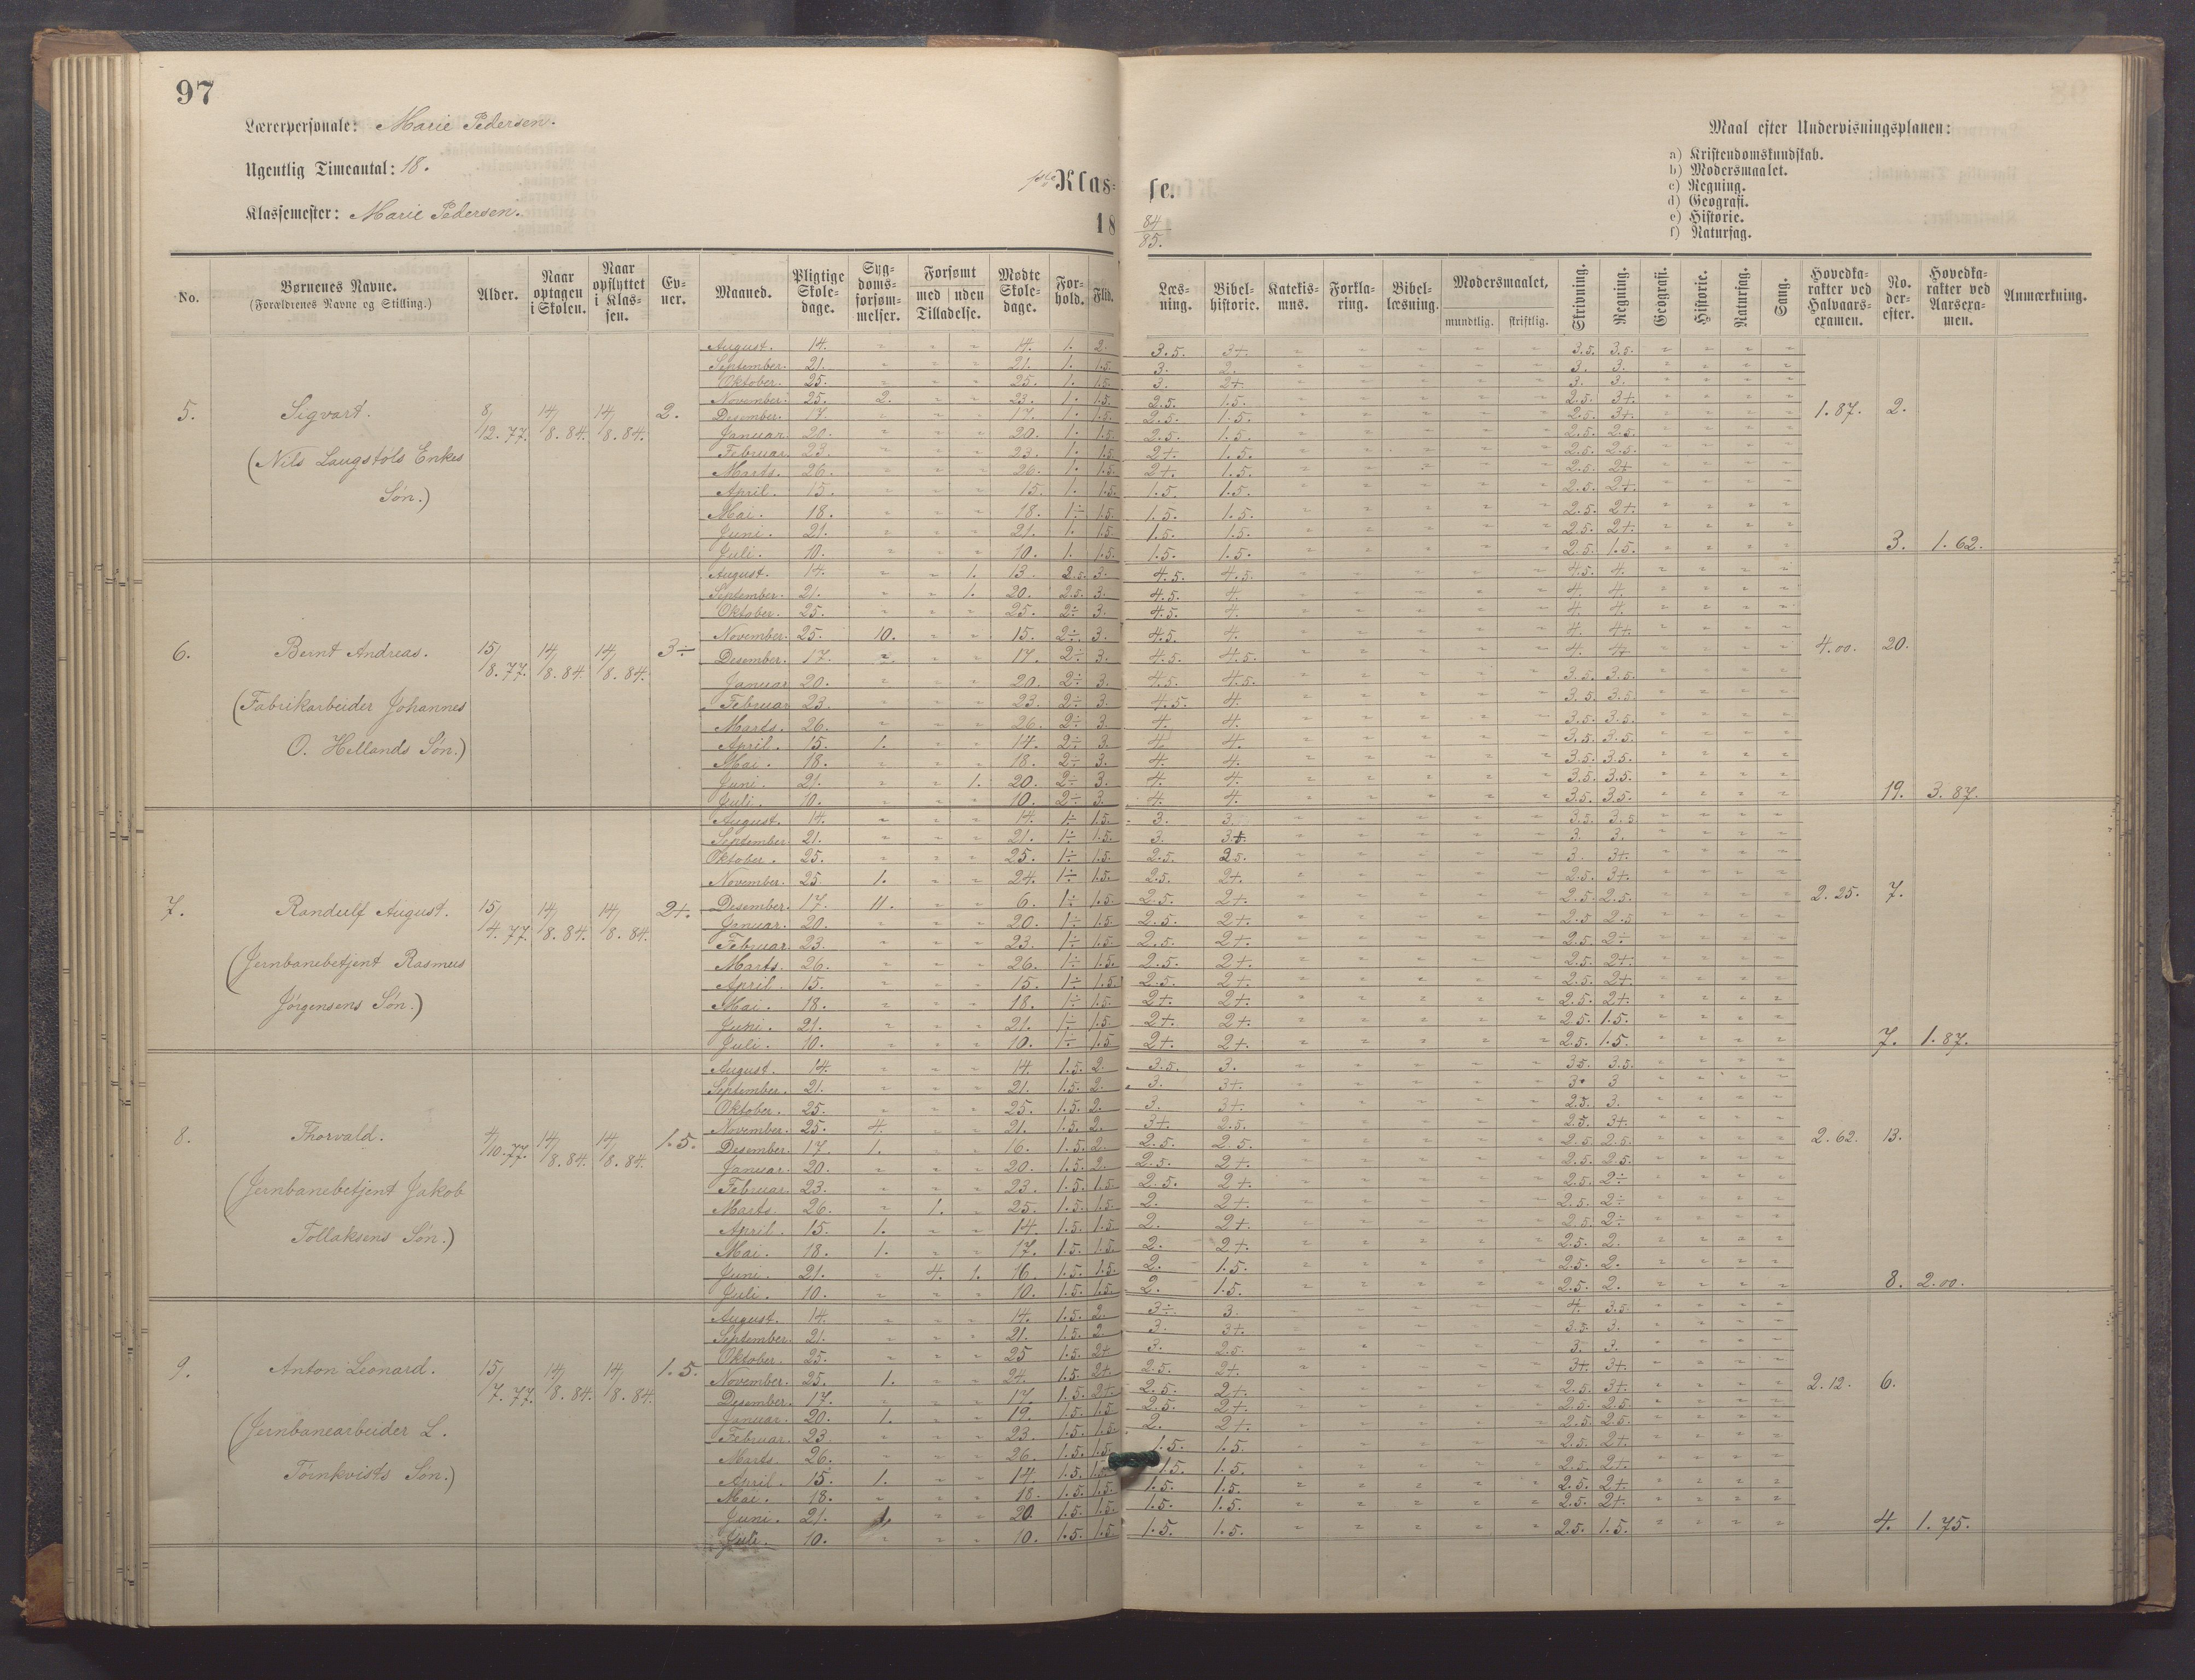 97
Lærerpersonale: Marie Pedersen.
Ugentlig Timeantal: 18.
Klassemester: Marie Pedersen.
1ste Klasse.
18 84/85.
Maal efter Undervisningsplanen:
a) Kristendomskundskab.
b) Modersmaalet.
c) Regning.
d) Geografi.
e) Historie.
f) Naturfag.
No. | Børnenes Navne. (Forældrenes Navne og Stilling.) | Alder. | Naar optagen i Skolen. | Naar opflyttet i Klassen. | Evner. | Maaned. | Pligtige Skoledage. | Sygdomsforsømmelser. | Forsømt med / uden Tilladelse. | Mødte Skoledage. | Forhold. | Flid. | Læsning. | Bibelhistorie. | Katekismus. | Forklaring. | Bibellæsning. | Modersmaalet, mundtlig. / skriftlig. | Skrivning. | Regning. | Geografi. | Historie. | Naturfag. | Sang. | Hovedkarakter ved Halvaarsexamen. | No. derefter. | Hovedkarakter ved Aarsexamen. | Anmærkning.
5. Sigvart. 8/12.77. 14/8.84. 14/8.84. 2. 1.87. 2.
(Nils Langstøls Enkes
Søn.)
August. 14. " " " 14. 1. 2. 3.5. 3+. " " " " " 3.5. 3.5. " " " "
September. 21. " " " 21. 1. 1.5. 3. 2. " " " " " 3. 3. " " " "
Oktober. 25. " " " 25. 1. 1.5. 3. 2+. " " " " " 3. 3. " " " "
November. 25. 2. " " 23. 1. 1.5. 2.5. 1.5. " " " " " 2.5. 3+. " " " "
Desember. 17. " " " 17. 1. 1.5. 2.5. 1.5. " " " " " 2.5. 3+. " " " "
Januar. 20. " " " 20. 1. 1.5. 2.5. 1.5. " " " " " 2.5. 2.5. " " " "
Februar. 23. " " " 23. 1. 1.5. 2+. 1.5. " " " " " 2.5. 2.5. " " " "
Marts. 26. " " " 26. 1. 1.5. 2+. 1.5. " " " " " 2.5. 2+. " " " "
April. 15. " " " 15. 1. 1.5. 1.5. 1.5. " " " " " 2.5. 2+. " " " "
Mai. 18. " " " 18. 1÷ 1.5. 1.5. 1.5. " " " " " 2.5. 2+. " " " "
Juni. 21. " " " 21. 1. 1.5. 1.5. 1.5. " " " " " 2.5. 2+. " " " "
Juli. 10. " " " 10. 1. 1.5. 1.5. 1.5. " " " " " 2.5. 1.5. " " " " 3. 1.62.
6. Bernt Andreas. 15/8.77. 14/8.84. 14/8.84. 3÷ 4.00. 20.
(Fabrikarbeider Johannes
O. Hellands Søn.)
August. 14. " " 1. 13. 2.5. 3. 4.5. 4.5. " " " " " 4.5. 4. " " " "
September. 21. " " 1. 20. 2.5. 3. 4.5. 4. " " " " " 4. 4. " " " "
Oktober. 25. " " " 25. 2÷ 3. 4.5. 4. " " " " " 4. 4. " " " "
November. 25. 10. " " 15. 2÷ 3. 4.5. 4. " " " " " 4. 4+. " " " "
Desember. 17. " " " 17. 2÷ 3. 4.5. 4.5. " " " " " 4. 4+ " " " "
Januar 20. " " " 20. 2÷ 3. 4.5. 4.5. " " " " " 3.5. 3.5. " " " "
Februar 23. " " " 23. 2÷ 3. 4.5. 4. " " " " " 3.5. 3.5. " " " "
Marts. 26. " " " 26. 2÷ 3. 4. 4. " " " " " 3.5. 3.5. " " " "
April. 15. 1. " " 14. 2÷ 3. 4. 4. " " " " " 3.5. 3.5. " " " "
Mai. 18. " " " 18. 2÷ 3. 4. 4. " " " " " 3.5. 3.5. " " " "
Juni. 21. " " 1. 20. 2÷ 3. 4. 4. " " " " " 3.5. 3.5. " " " "
Juli. 10. " " " 10. 2÷ 3. 4. 4. " " " " " 3.5. 3.5. " " " " 19. 3.87.
7. Randulf August. 15/4.77. 14/8.84. 14/8.84. 2+. 2.25. 7.
(Jernbanebetjent Rasmus
Jørgensens Søn.)
August. 14. " " " 14. 1÷ 1.5. 3. 3. " " " " " 3.5. 3.5 " " " "
September. 21. " " " 21. 1÷ 1.5. 3. 3+. " " " " " 3. 3. " " " "
Oktober. 25. " " " 25. 1÷ 1.5. 2.5. 2.5. " " " " " 3. 3+. " " " "
November. 25. 1. " " 24. 1÷ 1.5. 2.5. 2+. " " " " " 2.5. 3+. " " " "
Desember. 17. 11. " " 6. 1÷ 1.5. 2.5. 2+. " " " " " 2.5 2.5. " " " "
Januar. 20. " " " 20. 1÷ 1.5 2.5. 2+. " " " " " 2.5 2.5 " " " "
Februar. 23. " " " 23. 1÷ 1.5 2.5. 2+. " " " " " 2.5. 2÷ " " " "
Marts. 26. " " " 26. 1÷ 1.5. 2.5. 2+. " " " " " 2.5. 2+. " " " "
April. 15. " " " 15. 1÷ 1.5 2.5. 2+. " " " " " 2.5. 2+. " " " "
Mai. 18. " " " 18. 1÷ 1.5. 2+. 2+. " " " " " 2.5. 2+. " " " "
Juni. 21. " " " 21. 1÷ 1.5. 2+. 2+. " " " " " 2.5 1.5. " " " "
Juli. 10. " " " 10. 1÷ 1.5 2+. 2+. " " " " " 2.5. 1.5. " " " " 7. 1.87.
8. Thorvald. 4/10.77. 14/8.84. 14/8.84. 1.5. 2.62. 13.
(Jernbanebetjent Jakob
Tollaksens Søn.)
August. 14. " " " 14 1.5. 2. 3.5. 3. " " " " " 3.5. 3.5. " " " "
September. 21. " " " 21. 1.5. 2. 3. 3+. " " " " " 3. 3 " " " "
Oktober. 25. " " " 25. 1.5. 2. 3. 3+. " " " " " 2.5. 3. " " " "
November. 25. 4. " " 21. 1.5. 2. 3+. 2.5. " " " " " 2.5. 3+. " " " "
Desember. 17. 1. " " 16. 1.5. 2. 2.5. 2.5. " " " " " 2.5. 2.5. " " " "
Januar. 20. " " " 20. 1.5. 2. 2.5. 2+. " " " " " 2.5. 2.5. " " " "
Februar. 23. " " " 23. 1.5. 1.5. 2.5. 2+. " " " " " 2.5. 2÷ " " " "
Marts. 26. " 1. " 25. 1.5. 1.5. 2. 2+. " " " " " 2.5. 2÷ " " " "
April. 15. 1. " " 14. 1.5. 1.5. 2. 2+. " " " " " 2.5. 2÷ " " " "
Mai. 18. 1. " " 17. 1.5. 1.5. 2. 2+. " " " " " 2.5. 2. " " " "
Juni. 21. " 4. 1. 16. 1.5. 1.5. 2. 1.5. " " " " " 2.5. 2. " " " "
Juli. 10. " " " 10. 1.5. 1.5. 2. 1.5. " " " " " 2.5. 2. " " " " 8. 2.00.
9. Anton Leonard. 15/7.77. 14/8.84. 14/8.84. 1.5. 2.12. 6.
(Jernbanearbeider L.
Törnkvists Søn.)
August. 14. " " " 14. 1.5. 2. 3÷. 3. " " " " " 4. 3.5. " " " "
September. 21. " " " 21. 1.5. 2. 3. 3+. " " " " " 3.5. 3. " " " "
Oktober. 25. " " " 25 1.5. 2+ 3. 2.5. " " " " " 3. 3. " " " "
November. 25. 1. " " 24. 1.5. 2+. 2.5. 2+. " " " " " 3+. 3+. " " " "
Desember. 17. " " " 17. 1.5. 2+. 2.5. 2+. " " " " " 2.5. 3+. " " " "
Januar. 20. 1. " " 19. 1.5. 1.5 2.5. 2+. " " " " " 2.5. 2.5. " " " "
Februar. 23. " " " 23. 1.5. 1.5. 2. 2+. " " " " " 2.5. 2.5. " " " "
Marts. 26. " " " 26. 1.5. 1.5. 1.5. 1.5. " " " " " 2.5. 2+. " " " "
April. 15. 1. " " 14. 1.5. 1.5. 1.5. " " " " " 2.5. 2+. " " " "
Mai. 18. " " " 18. 1.5. 1.5. 1.5. 1.5. " " " " " 2.5. 2+. " " " "
Juni. 21. 1. " " 20. 1.5. 1.5. 1.5. 1.5. " " " " " 2.5. 2+. " " " "
Juli. 10. " " " 10. 1.5. 1.5. 1.5. 1.5. " " " " " 2.5. 1.5. " " " " 4. 1.75.